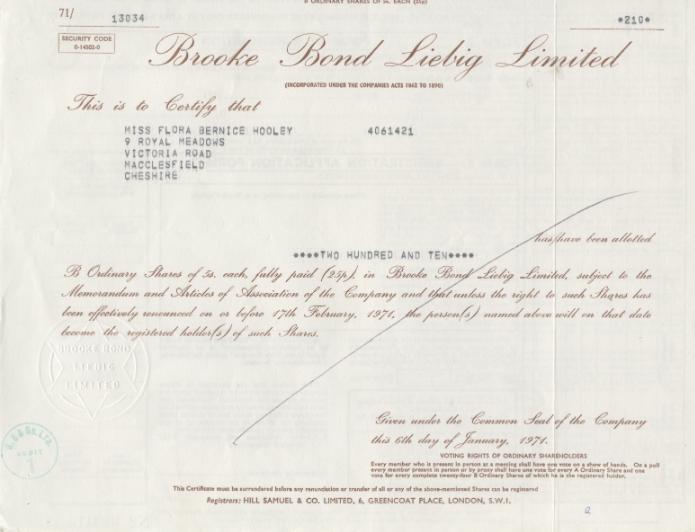 B ORDINARY SHARES OF 5s. EACH (25p)
71/ 13034
*210*
SECURITY CODE
0-14502-0
Brooke Bond Liebig Limited
(INCORPORATED UNDER THE COMPANIES ACTS 1862 TO 1890)
This is to Certify that
MISS FLORA BERNICE HOOLEY 4061421
9 ROYAL MEADOWS
VICTORIA ROAD
MACCLESFIELD
CHESHIRE
has/have been allotted
****TWO HUNDRED AND TEN****
B Ordinary Shares of 5s. each, fully paid (25p), in Brooke Bond Liebig Limited, subject to the
Memorandum and Articles of Association of the Company and that unless the right to such Shares has
been effectively renounced on or before 17th February, 1971, the person(s) named above will on that date
become the registered holder(s) of such Shares.
BROOKE BOND
LIEBIG
LIMITED
Given under the Common Seal of the Company
this 6th day of January, 1971.
AUDIT
VOTING RIGHTS OF ORDINARY SHAREHOLDERS
Every member who is present in person at a meeting shall have one vote on a show of hands. On a poll
every member present in person or by proxy shall have one vote for every A Ordinary Share and one
vote for every complete twenty-four B Ordinary Shares of which he is the registered holder.
This Certificate must be surrendered before any renunciation or transfer of all or any of the above-mentioned Shares can be registered
Registrars: HILL SAMUEL & CO. LIMITED, 6, GREENCOAT PLACE, LONDON, S.W.1.